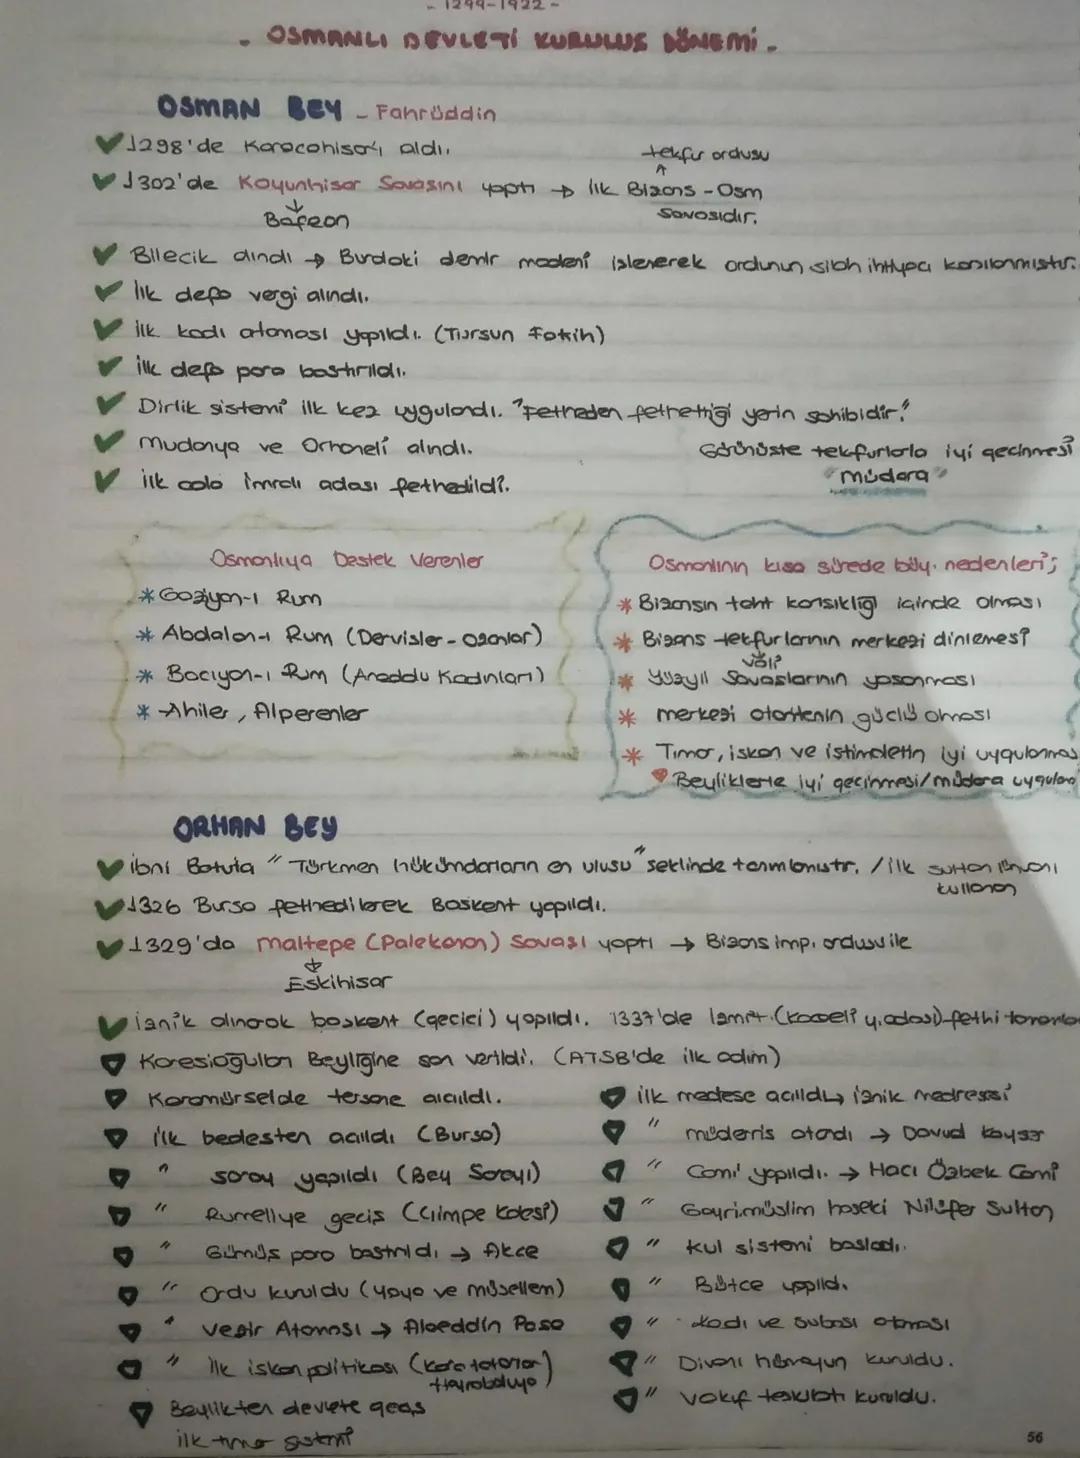 - 1299-1922 -
- OSMANLI DEVLETİ KURULUŞ DÖNEMİ -
OSMAN BEY - Fahrüddin
1298'de Karacahisar'ı aldı.
tekfur ordusu
1302'de Koyunhisar Savaşını yaptı → İlk Bizans - Osm
Bafeon
Savaşıdır.
Bilecik alındı → Burdaki demir madeni işlenerek ordunun silah ihtiyacı karşılanmıştır.
İlk defa vergi alındı.
İlk kadı ataması yapıldı. (Tursun Fakih)
İlk defa para bastırıldı.
Dirlik sistemi ilk kez uygulandı. "Fetheden fethettiği yerin sahibidir."
Mudanya ve Orhaneli alındı.
Görünüşte tekfurlarla iyi geçinmesi
"müdara"
İlk ada İmralı adası fethedildi.
Osmanlıya Destek Verenler
* Gaziyan-ı Rum
* Abdalan-ı Rum (Dervişler - Ozanlar)
* Bacıyan-ı Rum (Anadolu Kadınları)
* Ahiler, Alperenler
Osmanlının kısa sürede büy. nedenleri;
* Bizansın taht karışıklığı içinde olması
* Bizans tekfurlarının merkezi dinlemesi
vali
* Yüzyıl Savaşlarının yaşanması
* merkezi otoritenin güçlü olması
* Tımar, iskan ve istimaletin iyi uygulanmas
Beyliklerle iyi geçinmesi/müdara uygulan
ORHAN BEY
İbni Batuta "Türkmen hükümdarların en ulusu" şeklinde tanımlamıştır. / İlk sultan ünvanı
kullanan
1326 Bursa fethedilerek Başkent yapıldı.
1329'da Maltepe (Palekanon) Savaşı yaptı → Bizans imp. ordusu ile
Eskihisar
İznik alınarak başkent (geçici) yapıldı. 1337'de İzmit (Kocaeli y.adası) fethi tamamla
Karesioğulları Beyliğine son verildi. (ATSB'de ilk adım)
Karamürselde tersane açıldı.
İlk bedesten açıldı (Bursa)
" saray yapıldı (Bey Sarayı)
" Rumeliye geçiş (Çimpe Kalesi)
" Gümüş para bastırıldı → Akçe
" Ordu kuruldu (yaya ve müsellem)
" Vezir Ataması → Alaeddin Paşa
" İlk iskan politikası (Kara tatarlar)
Hayraboluya
Beylikten devlete geçiş
ilk tımar sistemi
İlk medrese açıldı → İznik medresesi
" müderris atandı → Davud Kayser
" Cami yapıldı. → Hacı Özbek Cami
" Gayrimüslim haseki Nilüfer Sultan
" Kul sistemi başladı.
" Bütçe yapıldı.
" Kadı ve Subaşı ataması
" Divanı hümayun kuruldu.
" Vakıf teşkilatı kuruldu.
56